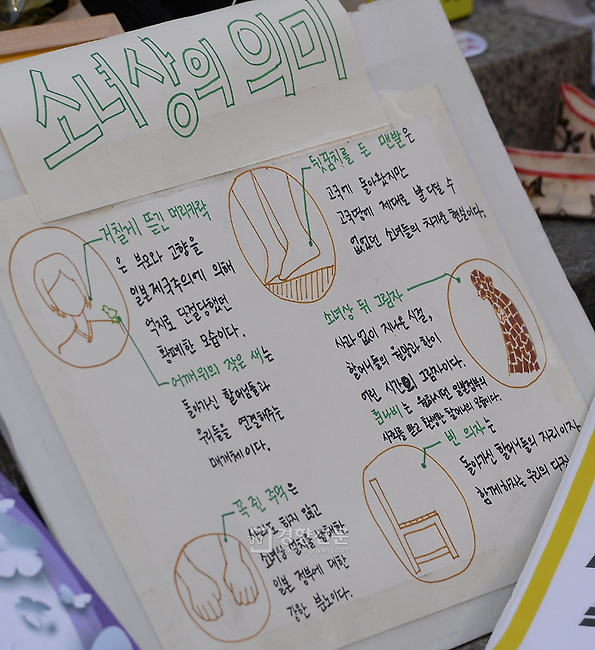 소녀상의 의미
거칠게 뜯긴 머리카락
은 부모와 고향을
일본제국주의에 의해
억지로 단절당했던
황폐한 모습이다.
어깨위의 작은 새는
돌아가신 할머님들과
우리들을 연결해주는
매개체이다.
꼭 쥔 주먹은
사과도 하지 않고
소녀상
일본 정부에 대한
강한 분노이다.
뒷꿈치를 든 맨발은
고국에 돌아왔지만
고국땅에 제대로 발 댈 수
없었던 소녀들의 처지와 현실이다.
소녀상 뒤 그림자
사과 없이 지나온 시절,
할머니들의 원망과 한이
어린 시간의 그림자이다.
흰나비는 일본정부의
사죄를 받고 환생한 할머니의 모습이다.
빈 의자는
돌아가신 할머니들의 자리이자
함께하자는 우리의 다짐
경향신문